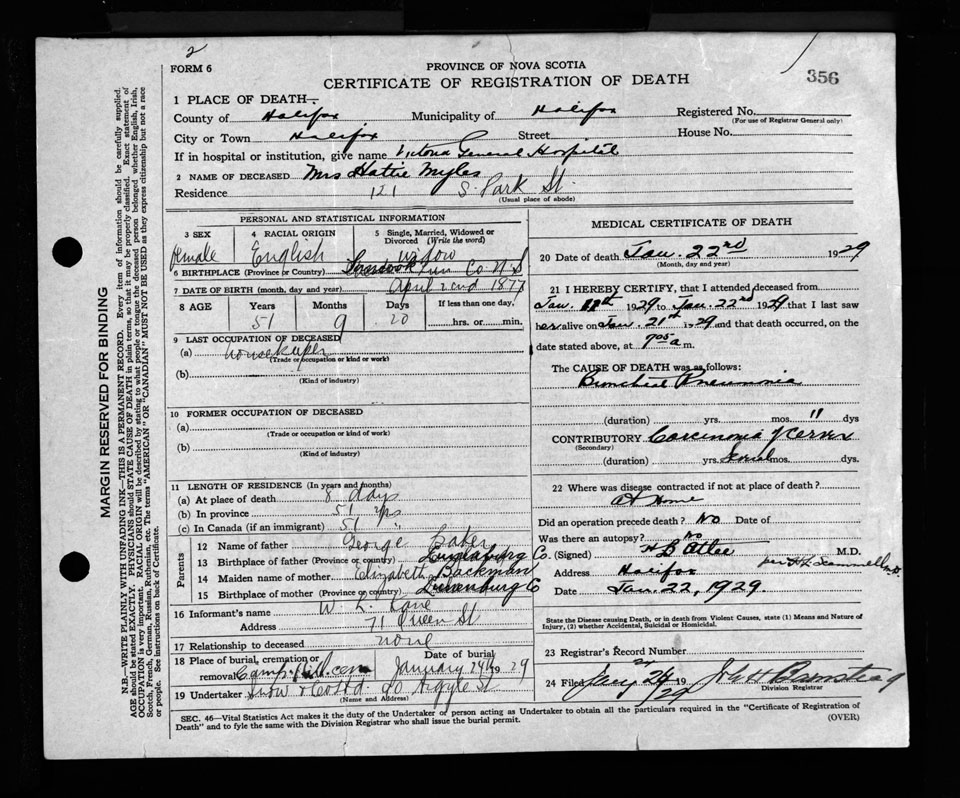 2
FORM 6
PROVINCE OF NOVA SCOTIA
CERTIFICATE OF REGISTRATION OF DEATH
356
1 PLACE OF DEATH—
County of Halifax Municipality of Halifax Registered No.
(For use of Registrar General only)
City or Town Halifax Street House No.
If in hospital or institution, give name Victoria General Hospital
2 NAME OF DECEASED Mrs Hattie Myles
Residence 121 S. Park St.
(Usual place of abode)
PERSONAL AND STATISTICAL INFORMATION
3 SEX
Female
4 RACIAL ORIGIN
English
5 Single, Married, Widowed or Divorced (Write the word)
widow
6 BIRTHPLACE (Province or Country) Co N.S
7 DATE OF BIRTH (month, day and year) April 2nd 1877
8 AGE Years Months Days If less than one day,
51 9 20 hrs. or min.
9 LAST OCCUPATION OF DECEASED
(a) housekeeper
(Trade or occupation or kind or work)
(b)
(Kind of industry)
10 FORMER OCCUPATION OF DECEASED
(a)
(Trade or occupation or kind of work)
(b)
(Kind of industry)
11 LENGTH OF RESIDENCE (In years and months)
(a) At place of death 8 days
(b) In province 51 yrs
(c) In Canada (if an immigrant) 51 "
Parents
12 Name of father George Baker
13 Birthplace of father (Province or country) Lunenburg Co.
14 Maiden name of mother Elizabeth Backman
15 Birthplace of mother (Province or country) Lunenburg Co
16 Informant's name W. L. Kane
Address 71 Queen St
17 Relationship to deceased none
18 Place of burial, cremation or removal Camp Hill Cem
Date of burial January 24th 1929
19 Undertaker Snow & Co Ltd. 90 Argyle St
(Name and Address)
MEDICAL CERTIFICATE OF DEATH
20 Date of death Jan. 22nd 1929
(Month, day and year)
21 I HEREBY CERTIFY, that I attended deceased from
Jan. 1929 to Jan. 22nd 1929 that I last saw
her alive on Jan. 21st 1929 and that death occurred, on
date stated above, at 7.05 a m.
The CAUSE OF DEATH was as follows:
Bronchial Pneumonia
(duration) yrs. mos. 11 dys
CONTRIBUTORY Carcinoma of Cervix
(Secondary)
(duration) yrs. Several mos. dys.
22 Where was disease contracted if not at place of death?
At Home
Did an operation precede death? No Date of
Was there an autopsy? No
(Signed) H B Atlee M.D.
Address Halifax
Date Jan. 22, 1929.
State the Disease causing Death, or in death from Violent Causes, state (1) Means and Nature of Injury, (2) whether Accidental, Suicidal or Homicidal.
23 Registrar's Record Number
24 Filed Jany 24 19 29
Division Registrar
SEC. 46—Vital Statistics Act makes it the duty of the Undertaker or person acting as Undertaker to obtain all the particulars required in the "Certificate of Registration of
Death" and to fyle the same with the Division Registrar who shall issue the burial permit.
(OVER)
MARGIN RESERVED FOR BINDING
N.B.—WRITE PLAINLY WITH UNFADING INK—THIS IS A PERMANENT RECORD. Every item of information should be carefully supplied.
AGE should be stated EXACTLY. PHYSICIANS should STATE CAUSE OF DEATH in plain terms, so that it may be properly classified. Exact statement of
OCCUPATION is very important. RACIAL ORIGIN will be described by stating to what people or tongue the deceased person belonged whether English, Irish,
Scotch, French, German, Russian, Ruthenian, etc. The terms "AMERICAN" OR "CANADIAN" MUST NOT BE USED as they express citizenship but not a race
or people. See instructions on back of Certificate.